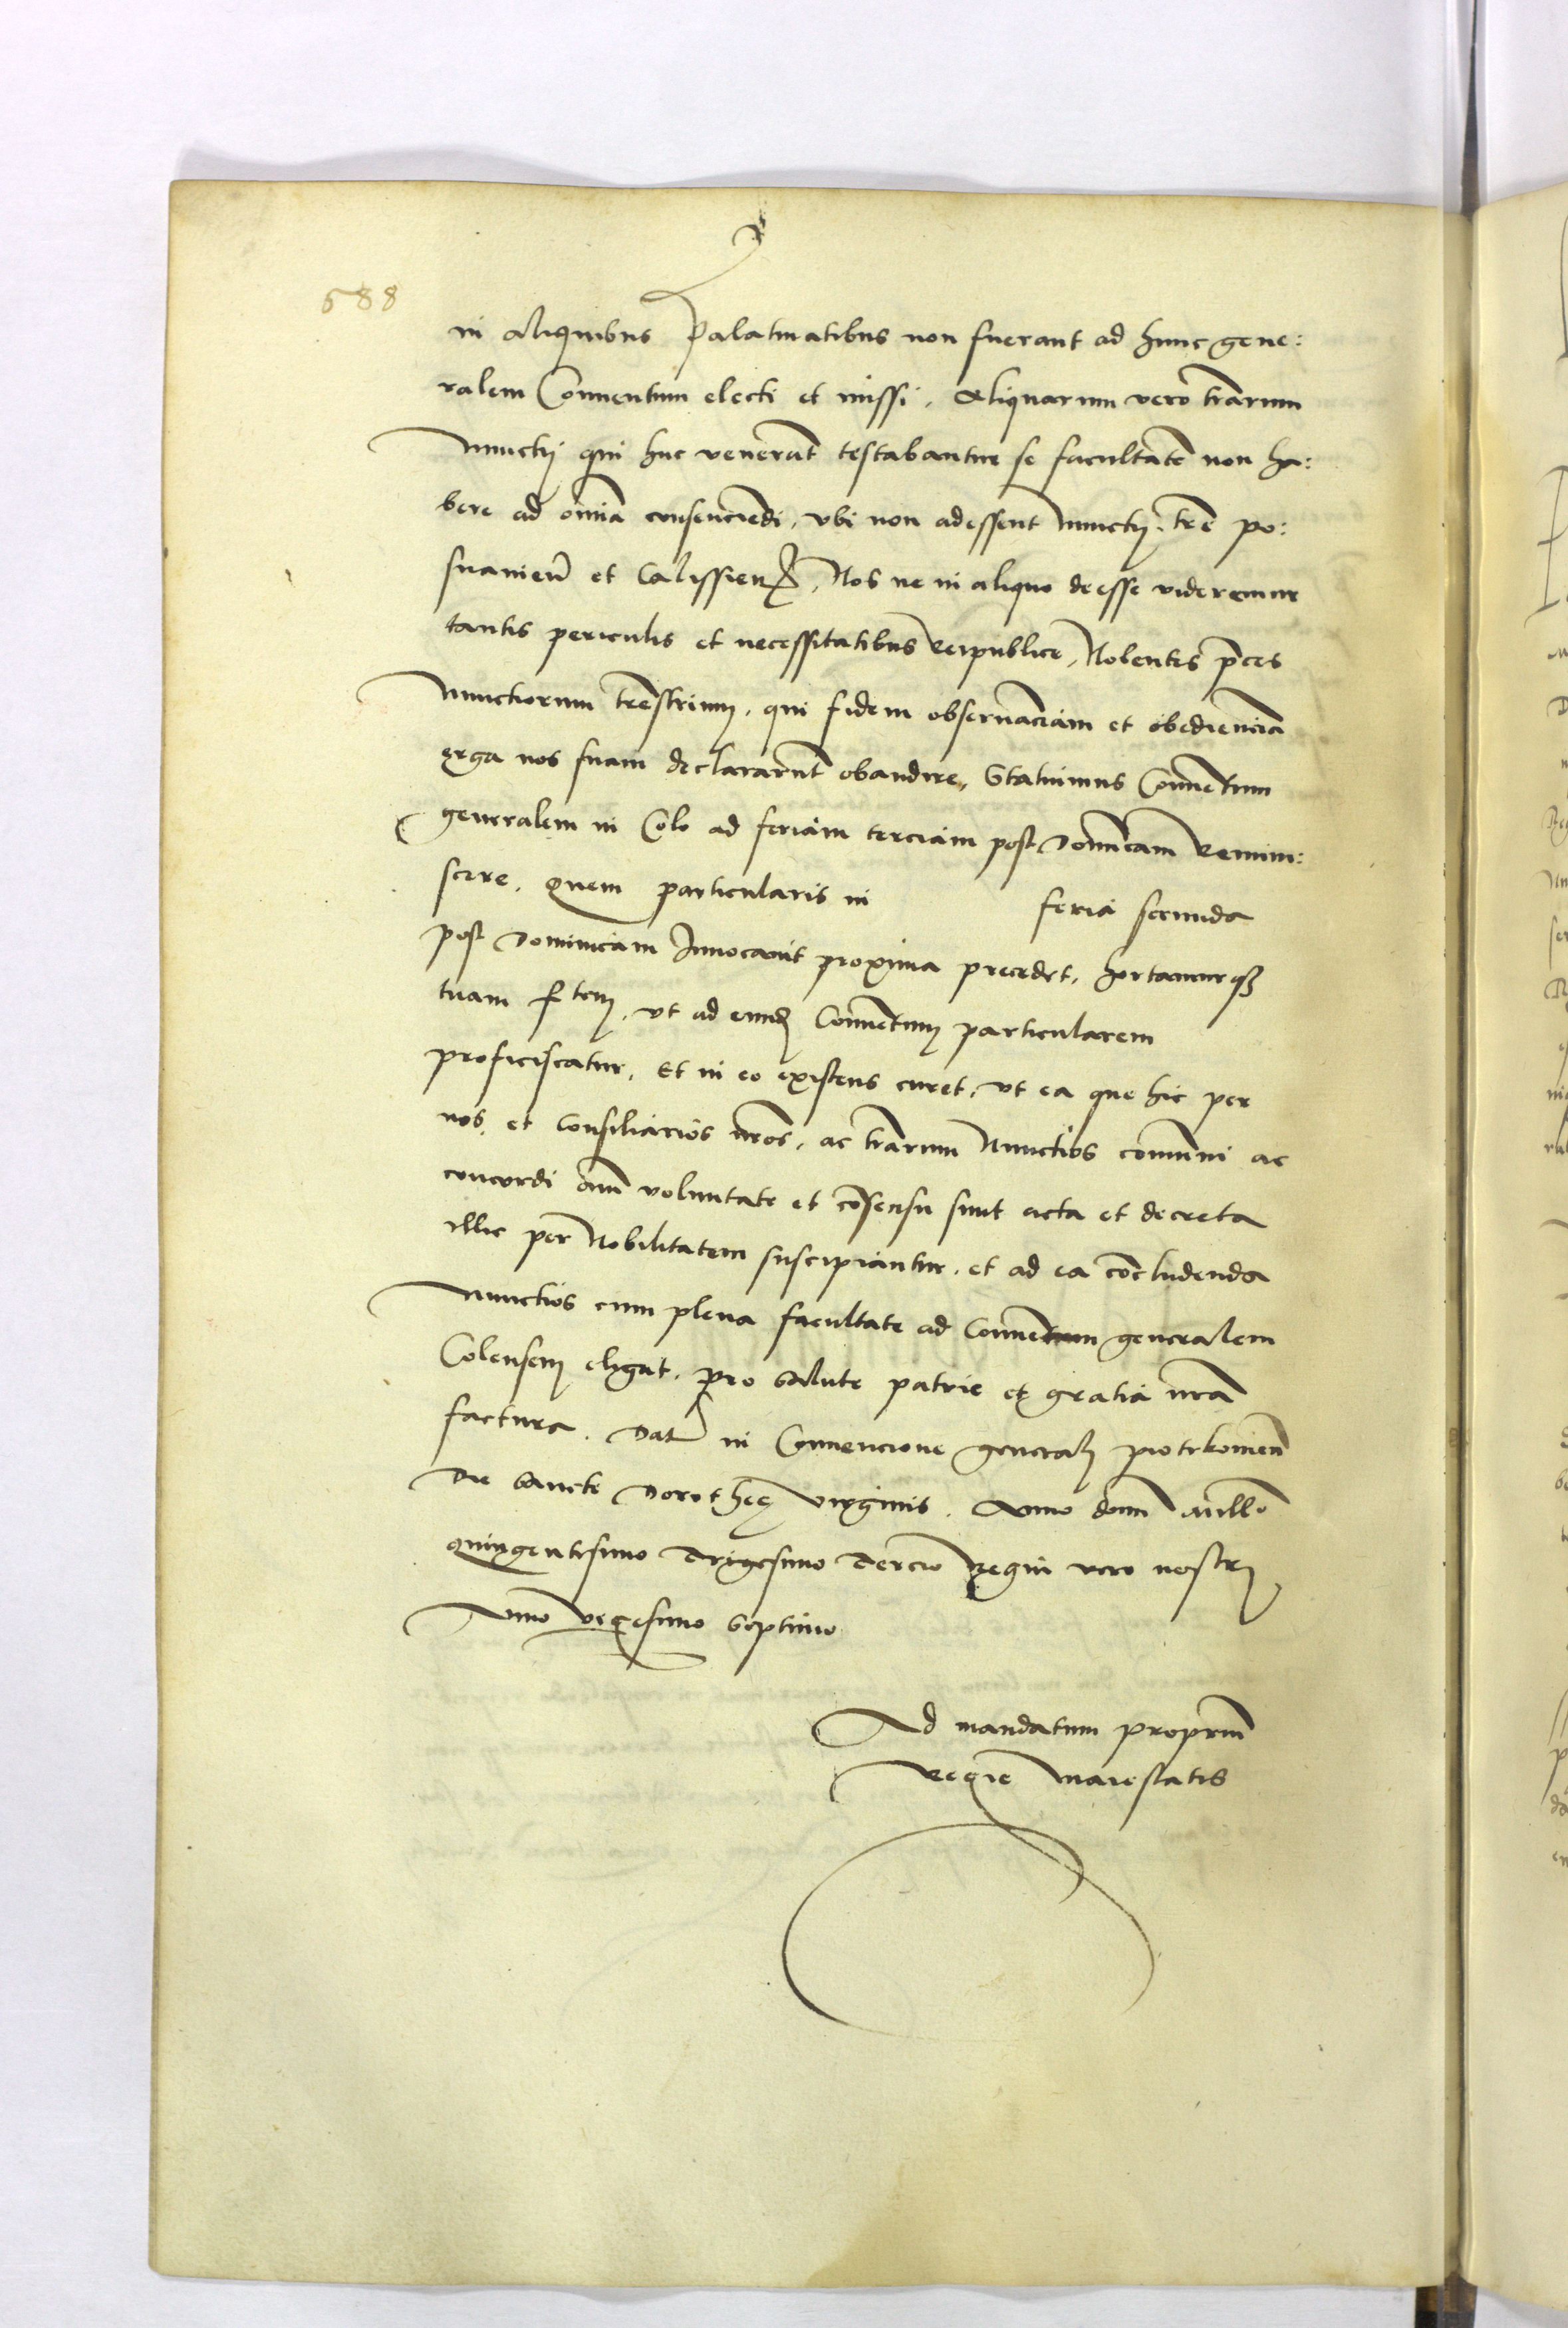 588
in aliquibus Palatinatibus non fuerant ad hunc gene:
ralem Conuentum electi et missi. Aliquarum vero trarum
Nunctij qui huc venerut testabantur se facultate non ha:
bere ad omnia consenciendi, vbi non adessent Nunctij tre po:
snanien et Calissien, Nos ne in aliquo deesse videremur
tantis periculis et necessitatibus Reipublice, Nolentes pces
Nunctiorum trestrium, qui fidem obseruanciam et obedienciam
erga nos suam declararunt obaudire, Statuimus Conuentum
generalem in Colo ad feriam terciam post Dominicam Remini:
scere, Quem particularis in feria secunda
post Dominicam Inuocauit proxima precedet, hortamurq3
tuam f tem, vt ad eund Conuentum particularem
proficiscatur, Et in eo existens curet, vt ea que hic per
nos et Consiliarios nros, ac trarum Nunctios comuni ac
concordi oim voluntate et cosensu sunt acta et decreta
illic per Nobilitatem suscipiantur, et ad ea concludenda
Nunctios cum plena facultate ad Conuentum generalem
Colensem eligat, pro salute patrie et gratia nra
factura. Dat in Conuencione generali Piotrkouien
Die sancte Dorothee virginis. Anno domi millo
quingentesimo Trigesimo Tercio Regni vero nostri
Anno vigesimo septimo
Ad mandatum proprium
Regie Maiestatis